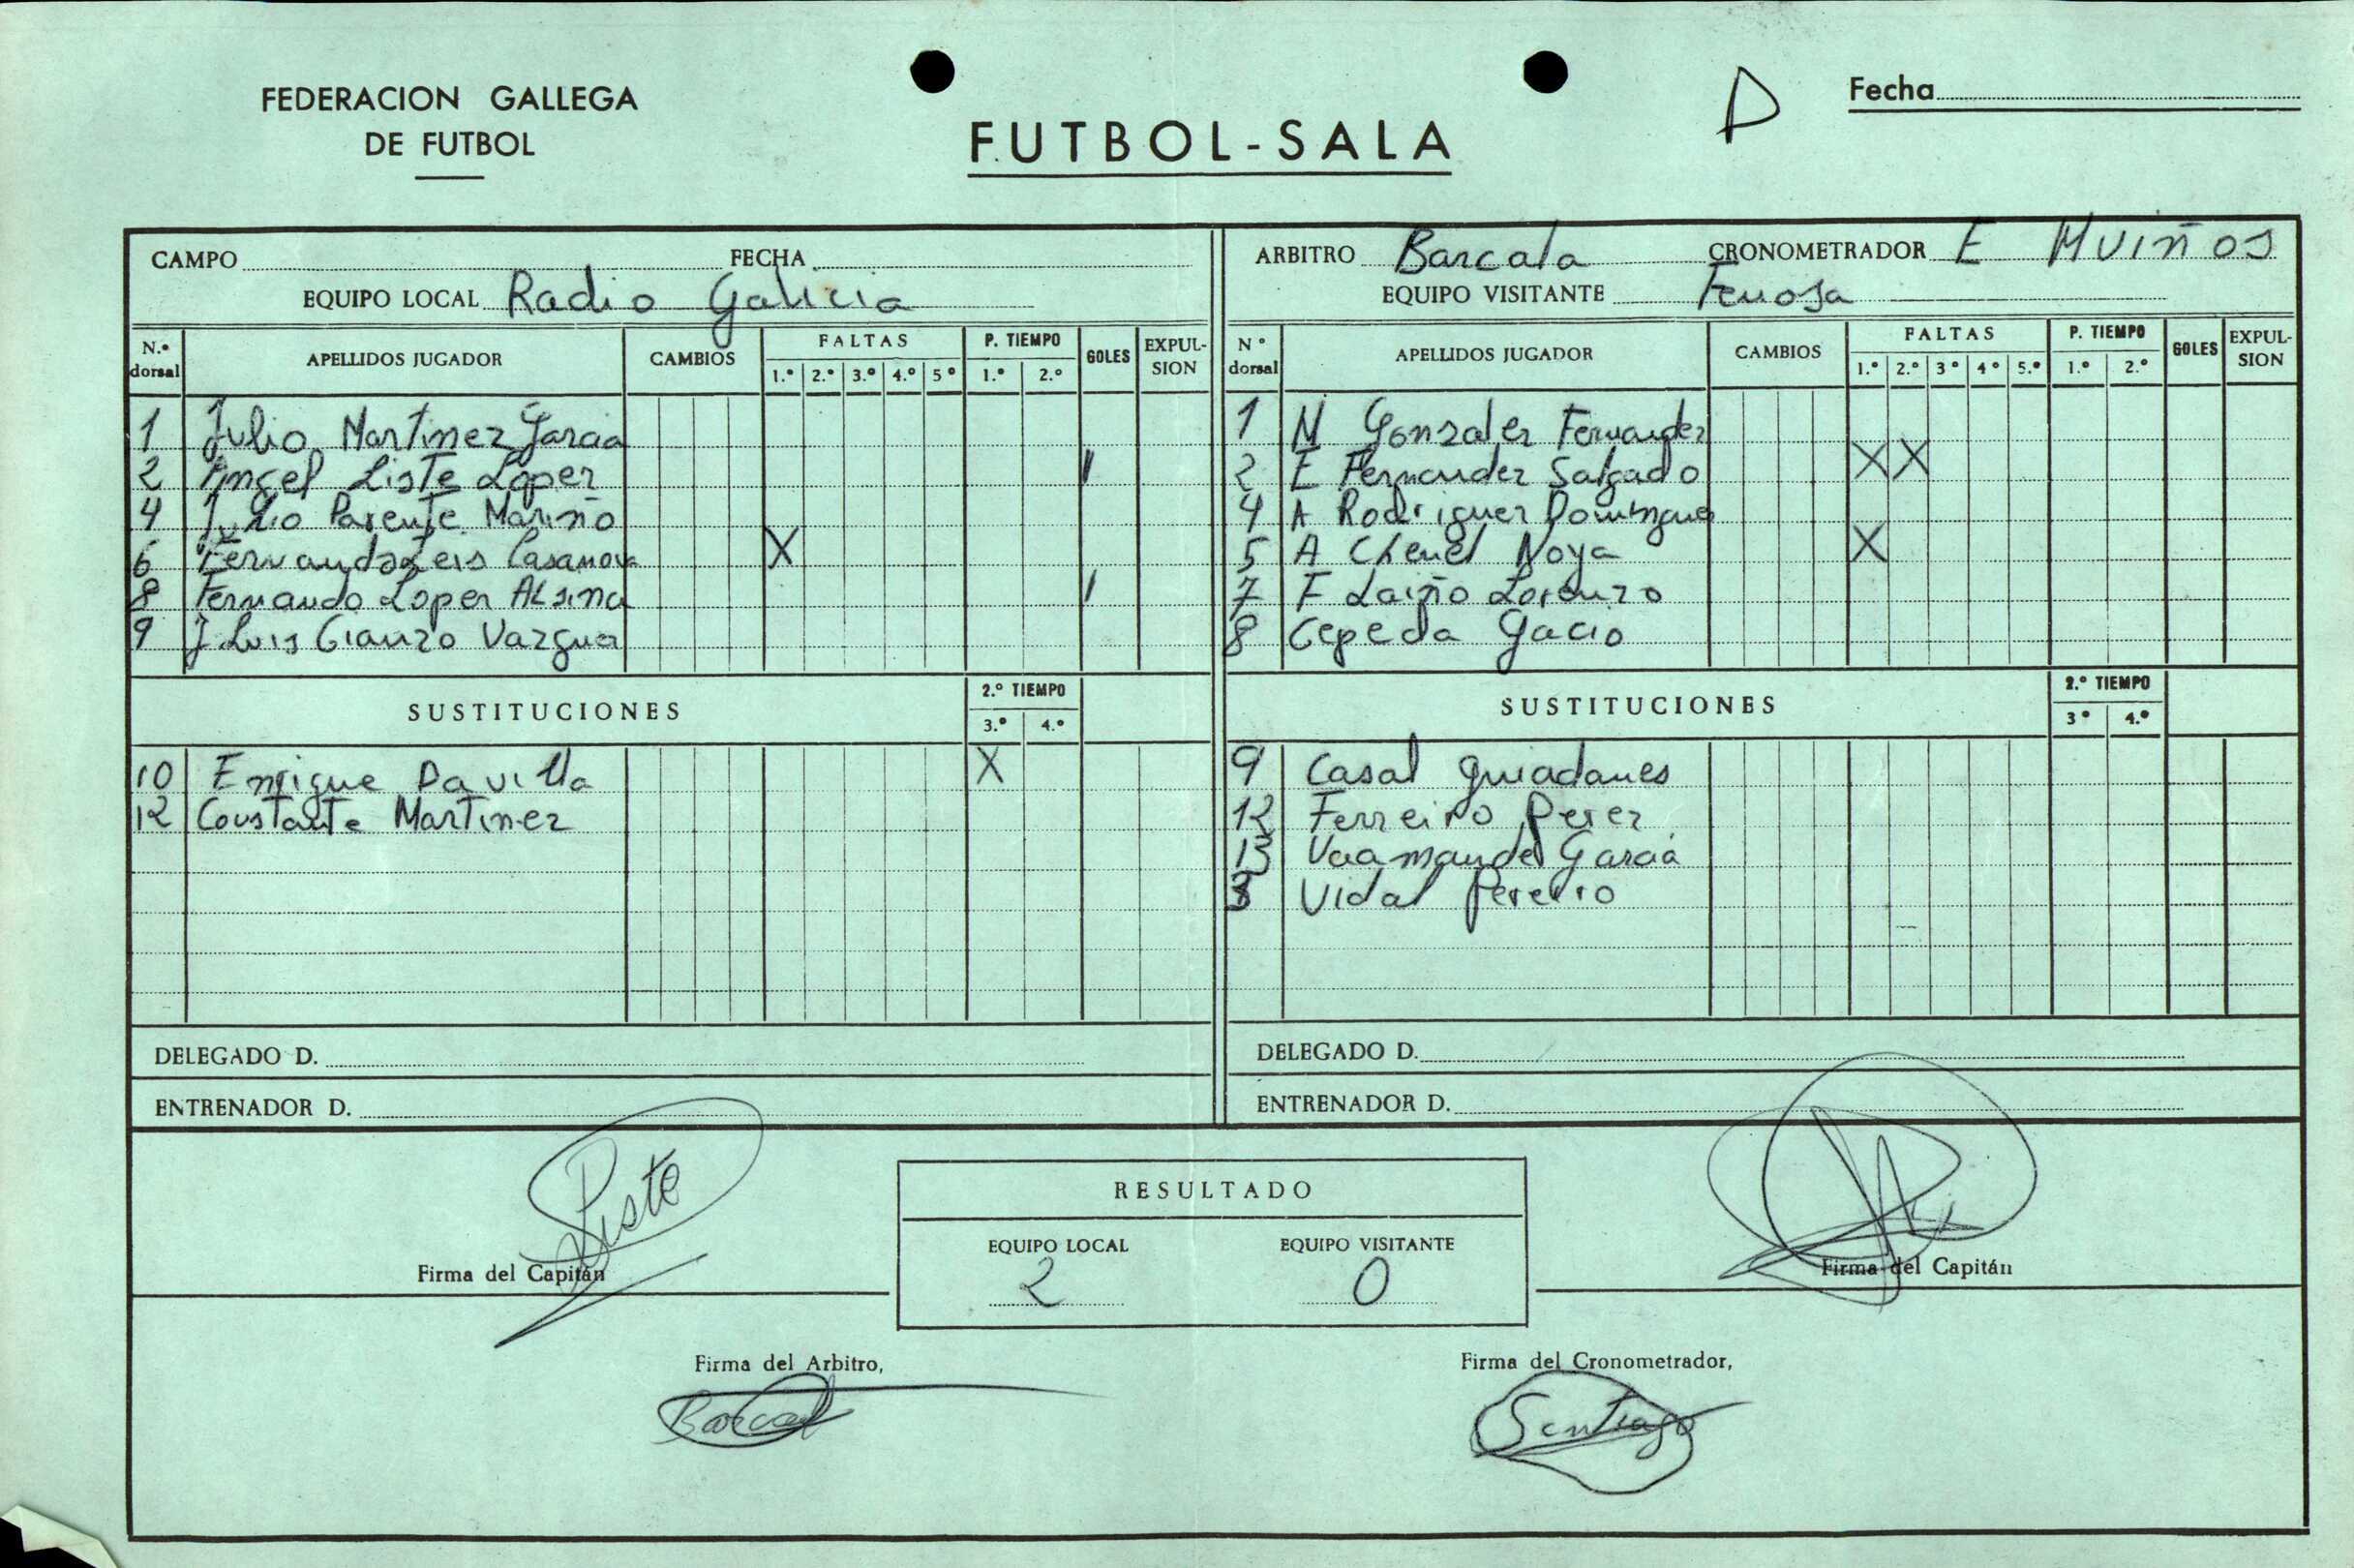 FEDERACION GALLEGA
DE FUTBOL
FUTBOL-SALA
D
Fecha
CAMPO FECHA
EQUIPO LOCAL Radio Galicia
N.º dorsal APELLIDOS JUGADOR CAMBIOS FALTAS 1.º 2.º 3.º 4.º 5º P. TIEMPO 1.º 2.º GOLES EXPUL-SION
1 Julio Martinez Garcia
2 Angel Liste Lopez I
4 Julio Parente Mariño
6 Fernando Leis Casanova X
8 Fernando Lopez ALsina I
9 J Luis Cianzo Vazquez
SUSTITUCIONES 2.º TIEMPO 3.º 4.º
10 Enrique Davilla X
12 Constante Martinez
DELEGADO D.
ENTRENADOR D.
ARBITRO Barcala CRONOMETRADOR E Muiños
EQUIPO VISITANTE Fenosa
Nº dorsal APELLIDOS JUGADOR CAMBIOS FALTAS 1.º 2.º 3º 4º 5.º P. TIEMPO 1.º 2.º GOLES EXPUL-SION
1 M Gonzalez Fernandez
2 E Fernandez Salgado X X
4 A Rodriguez Dominguez
5 A Chenel Noya X
7 F Laiño Lorenzo
8 Cepeda Gacio
SUSTITUCIONES 2.º TIEMPO 3º 4.º
9 Casal Guiadanes
12 Ferreiro Perez
13 Vaamonde Garcia
3 Vidal Pereiro
DELEGADO D.
ENTRENADOR D.
Liste
Firma del Capitán
RESULTADO
EQUIPO LOCAL EQUIPO VISITANTE
2 0
Firma del Capitán
Firma del Arbitro,
Barcala
Firma del Cronometrador,
Santiago